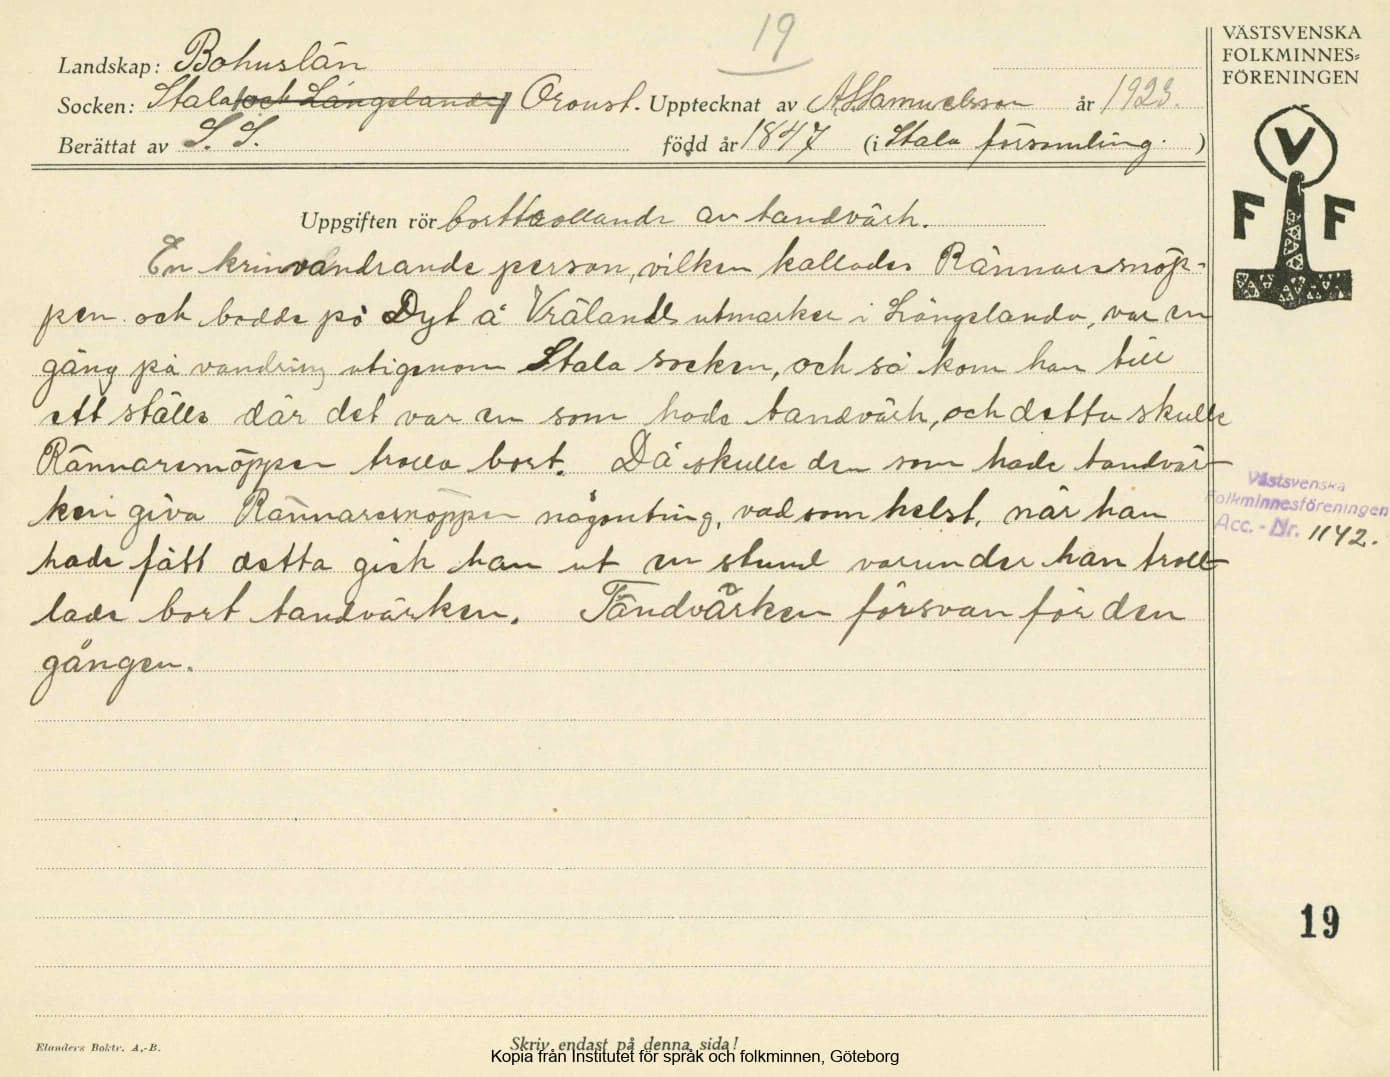 19
VÄSTSVENSKA
FOLKMINNES-
FÖRENINGEN
Landskap: Bohuslän
Socken: Stala och Långelanda Oroust. Upptecknat av A S Samuelsson år 1923.
Berättat av S. S. född år 1847 (i Stala församling. )
V
F F
Uppgiften rör borttrollande av tandvärk.
En kringvandrande person, vilken kallades Rännaresnöp-
pen och bodde på Dyt å Vrälands utmarker i Långelanda, var en
gång på vandring utigenom Stala socken, och så kom han till
ett ställe där det var en som hade tandvärk, och detta skulle
Rännaresnöppen trolla bort. Då skulle den som hade tandvär-
ken giva Rännaresnöppen någonting, vad som helst, när han
hade fått detta gick han ut en stund varunder han troll-
lade bort tandvärken. Tandvärken försvan för den
gången.
Västsvenska
Folkminnesföreningen
Acc. - Nr. 1142.
19
Elanders Boktr. A.-B.
Skriv endast på denna sida!
Kopia från Institutet för språk och folkminnen, Göteborg